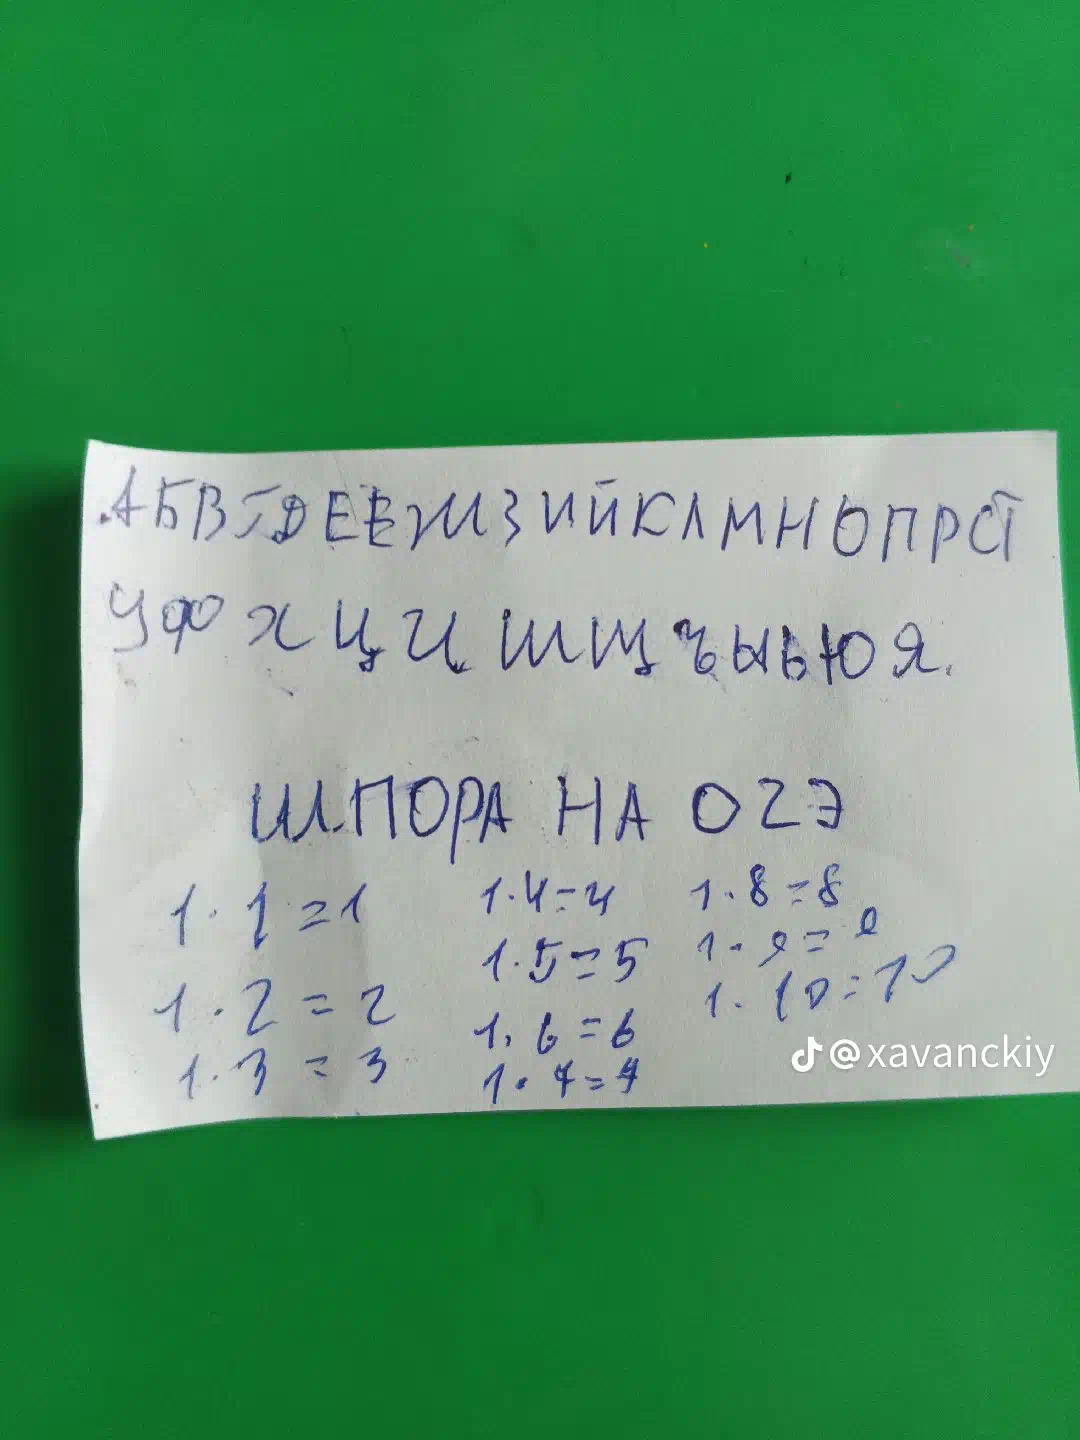 АБВГДЕЁЖЗИЙКЛМНОПРСТ
УФХЦЦШЩЪЫЬЮЯ.
ШПОРА НА ОГЭ
1·1=1
1·2=2
1·3=3
1·4=4
1·5=5
1·6=6
1·7=7
1·8=8
1·9=9
1·10=10
@xavanckiy